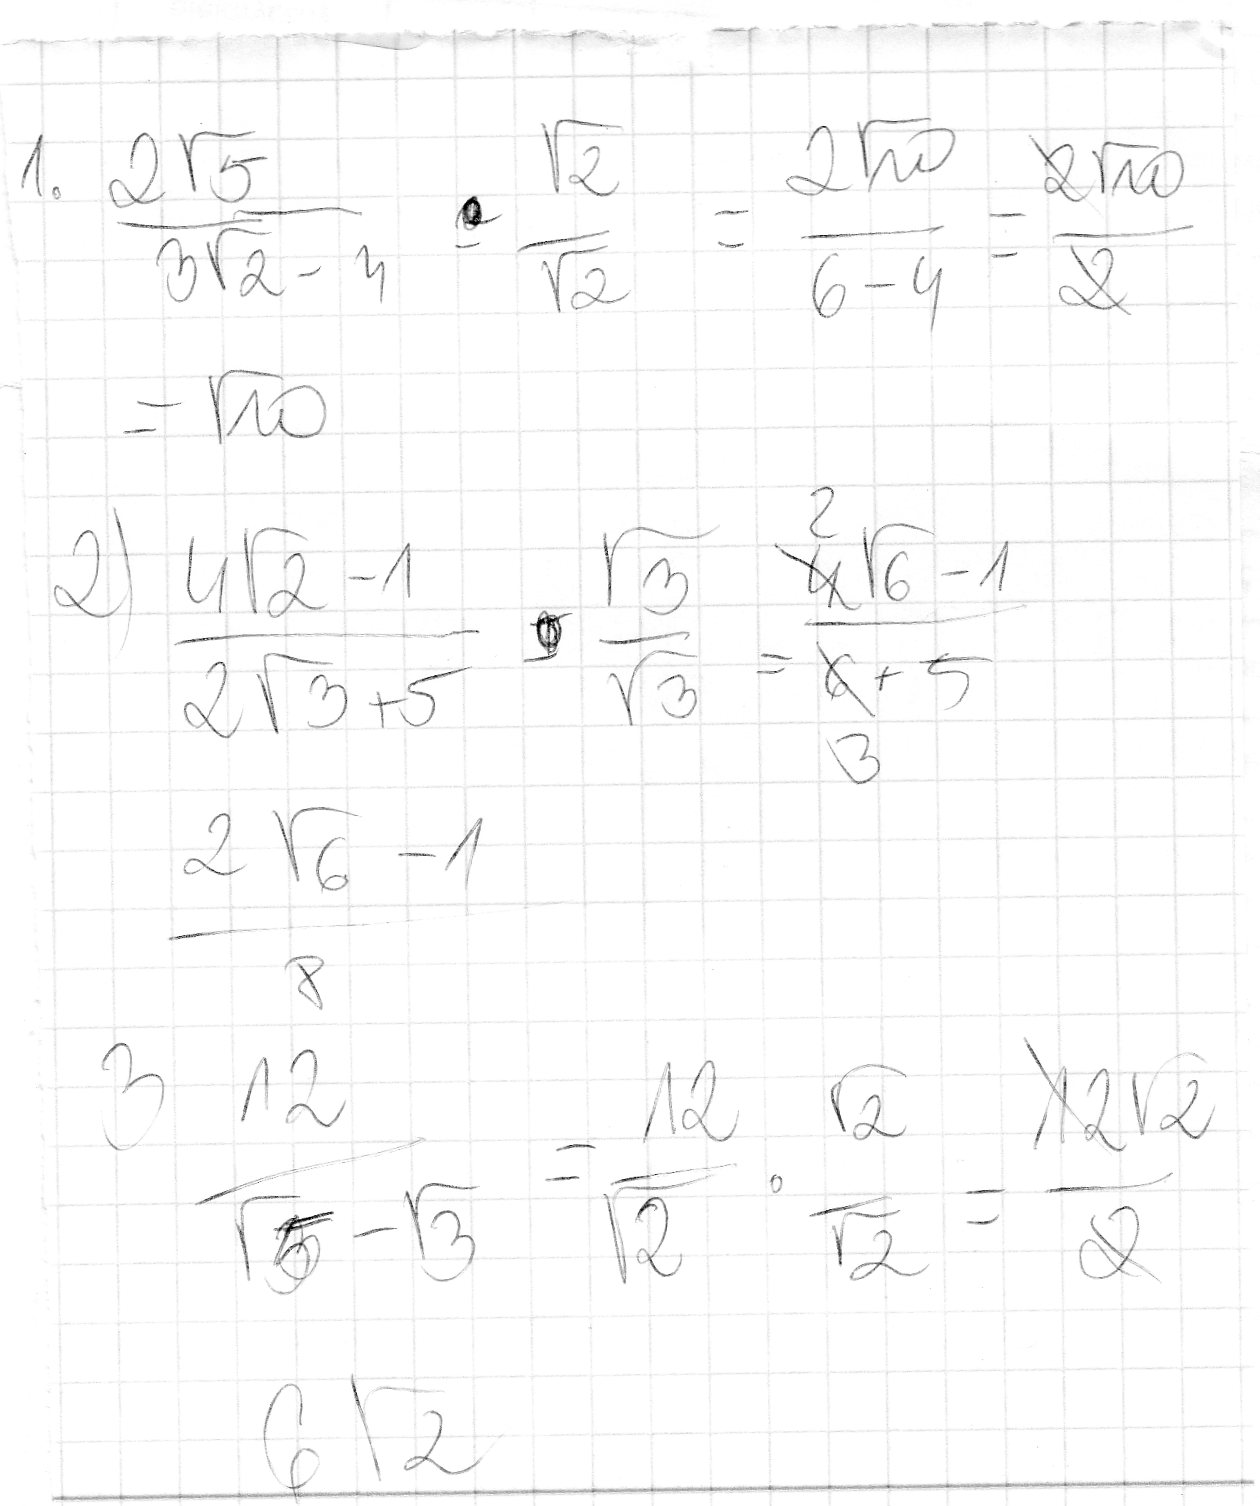 1. 2√5 / (3√2 - 4) · √2/√2 = 2√10 / (6 - 4) = 2√10 / 2
= √10
2) (4√2 - 1) / (2√3 + 5) · √3/√3 = (4√6 - 1) / (6 + 5) 2 3
(2√6 - 1) / 8
3 12 / (√5 - √3) = 12/√2 · √2/√2 = 12√2 / 2
6√2